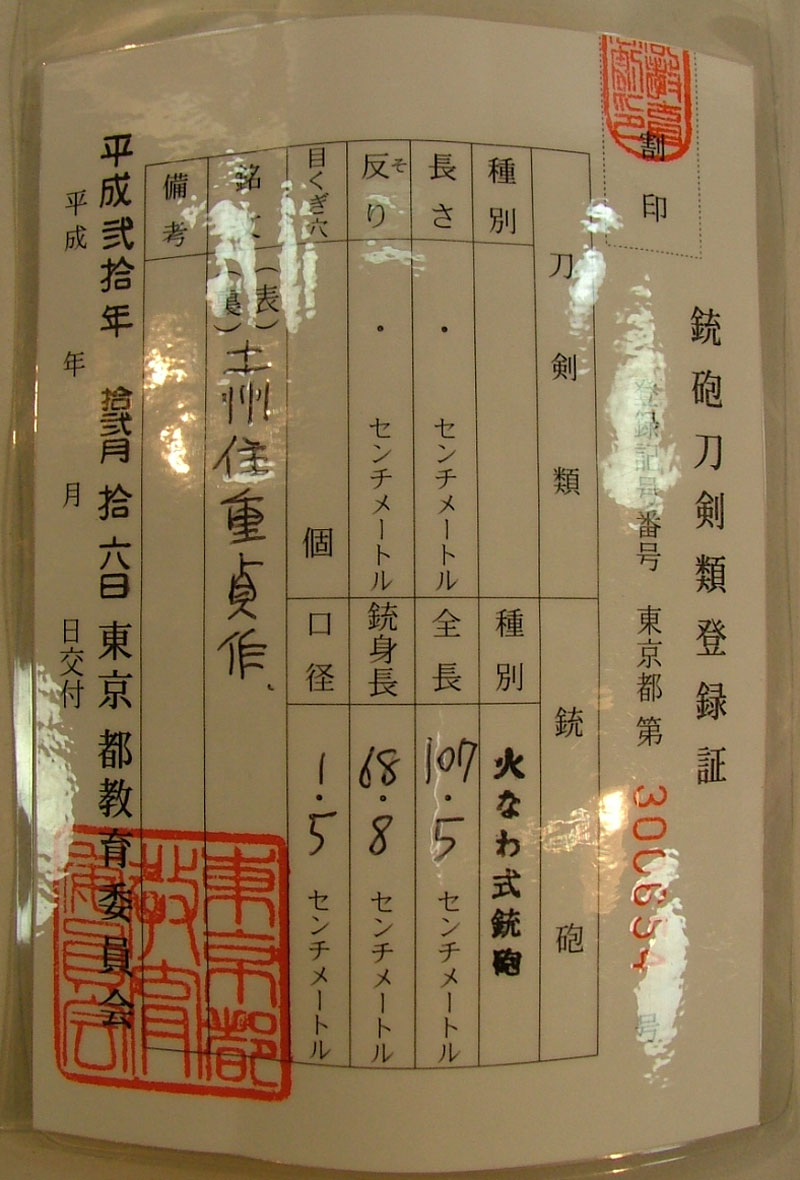 割印
銃砲刀剣類登録証
登録記号番号 東京都第 306654 号
刀剣類 銃砲
種別 種別 火なわ式銃砲
長さ ・ センチメートル 全長 107.5 センチメートル
反り そ ・ センチメートル 銃身長 68.8 センチメートル
目くぎ穴 個 口径 1.5 センチメートル
銘文 (表)
(裏) 土州住重貞作
備考
平成弐拾年拾弐月拾六日 東京都教育委員会
平成 年 月 日交付
東京都教育委員会